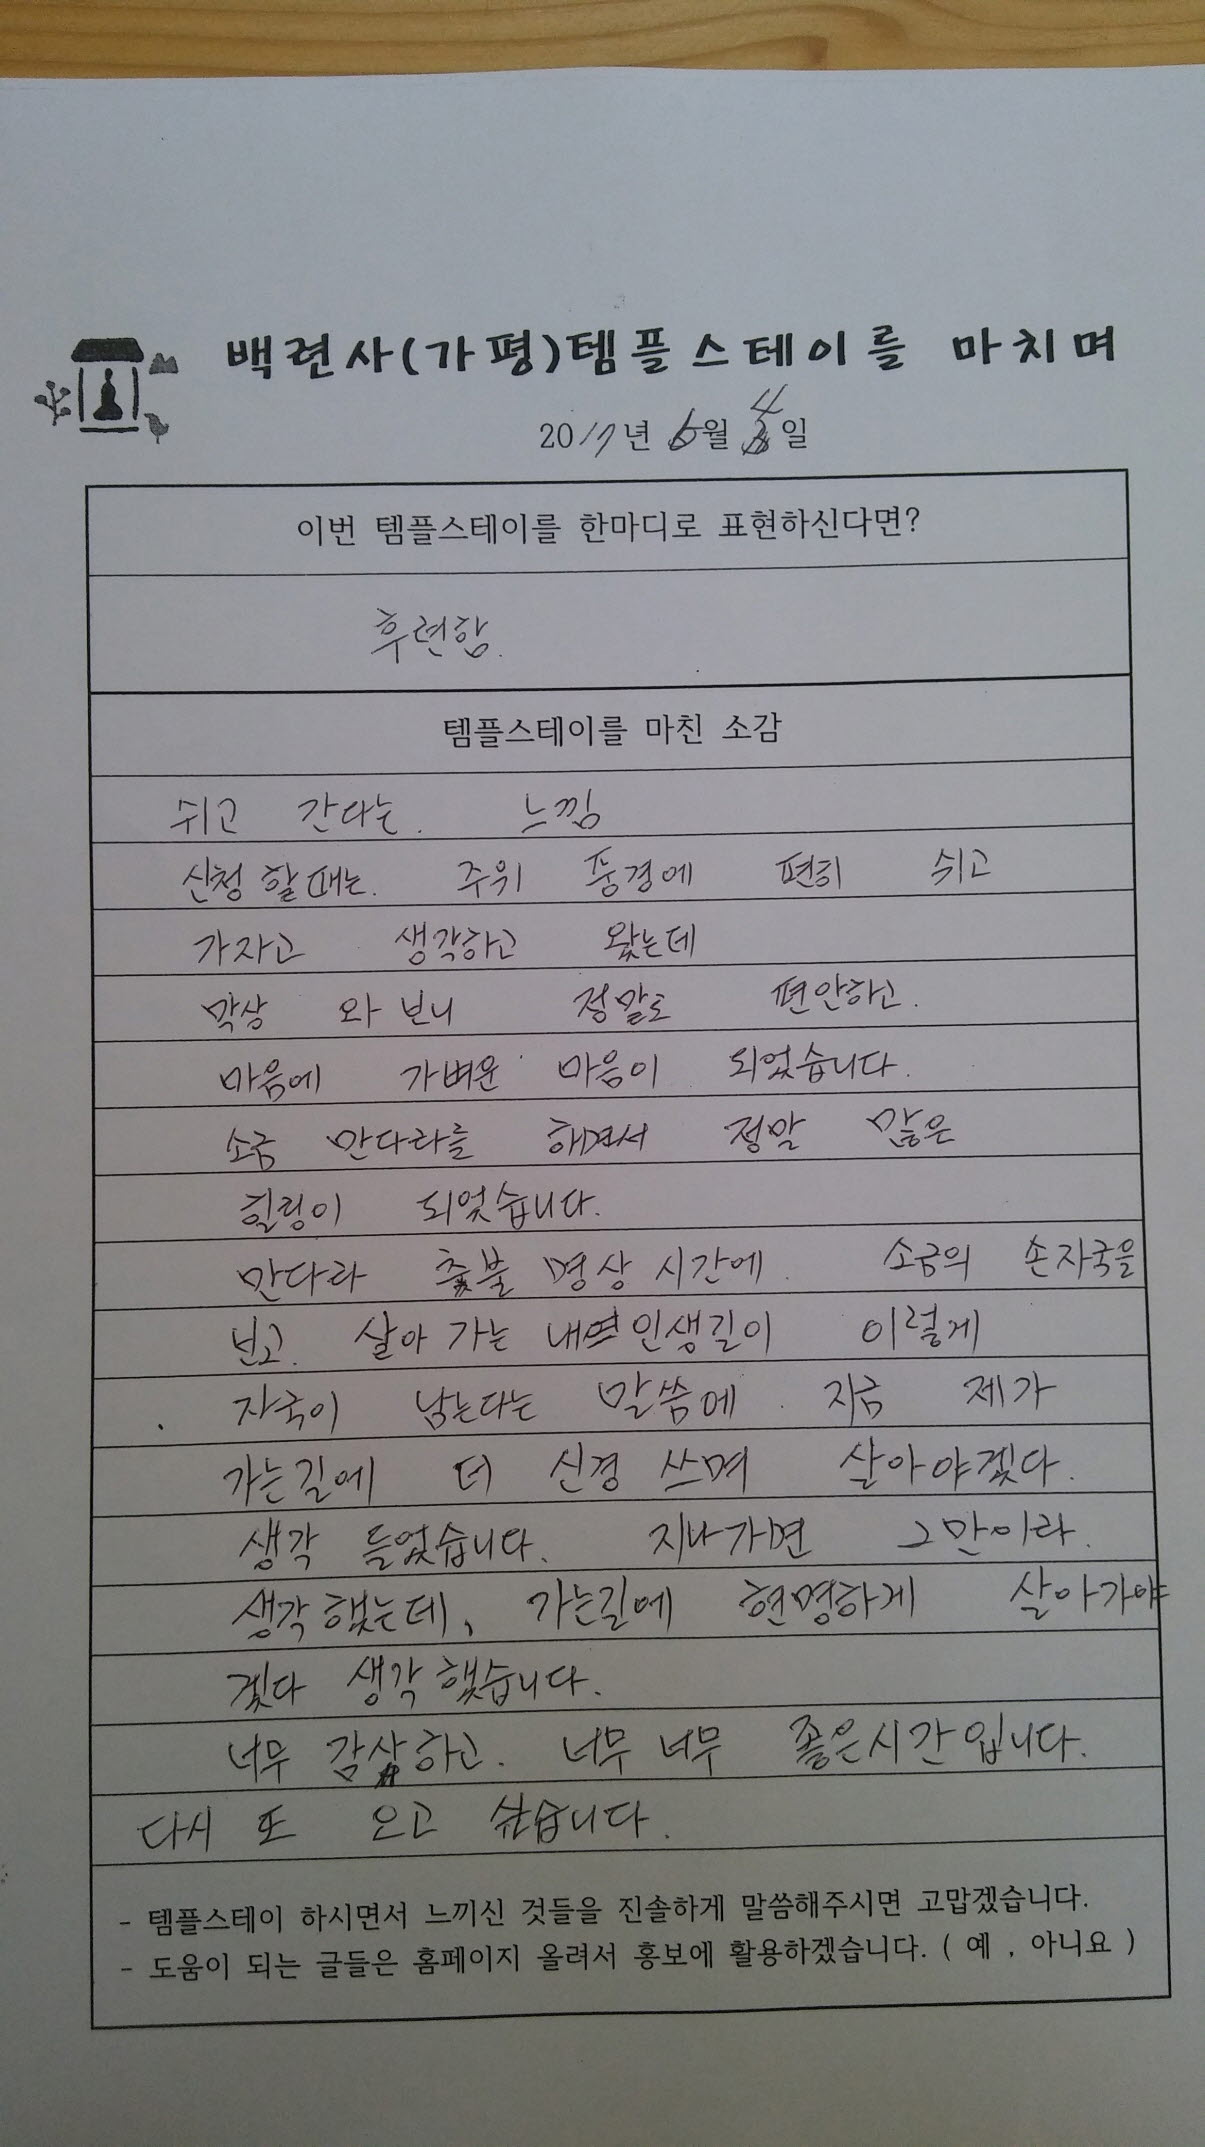 백련사(가평)템플스테이를 마치며
2017년 6월 4일
이번 템플스테이를 한마디로 표현하신다면?
후련함.
템플스테이를 마친 소감
쉬고 간다는. 느낌
신청 할때는. 주위 풍경에 편히 쉬고
가자고 생각하고 왔는데
막상 와 보니 정말로 편안하고.
마음에 가벼운 마음이 되었습니다.
소금 만다라를 해면서 정말 많은
힐링이 되엇습니다.
만다라 춧불 명상 시간에. 소금의 손자국을
보고. 살아 가는 내 인생길이 이렇게
자국이 남는다는 말씀에. 지금 제가
가는길에 더 신경 쓰며 살아야겠다.
생각 들었습니다. 지나가면 그만이라.
생각 했는데, 가는길에 현명하게 살아가야
겠다 생각 했습니다.
너무 감사하고. 너무 너무 좋은시간입니다.
다시 또 오고 싶습니다.
- 템플스테이 하시면서 느끼신 것들을 진솔하게 말씀해주시면 고맙겠습니다.
- 도움이 되는 글들은 홈페이지 올려서 홍보에 활용하겠습니다. ( 예 , 아니요 )